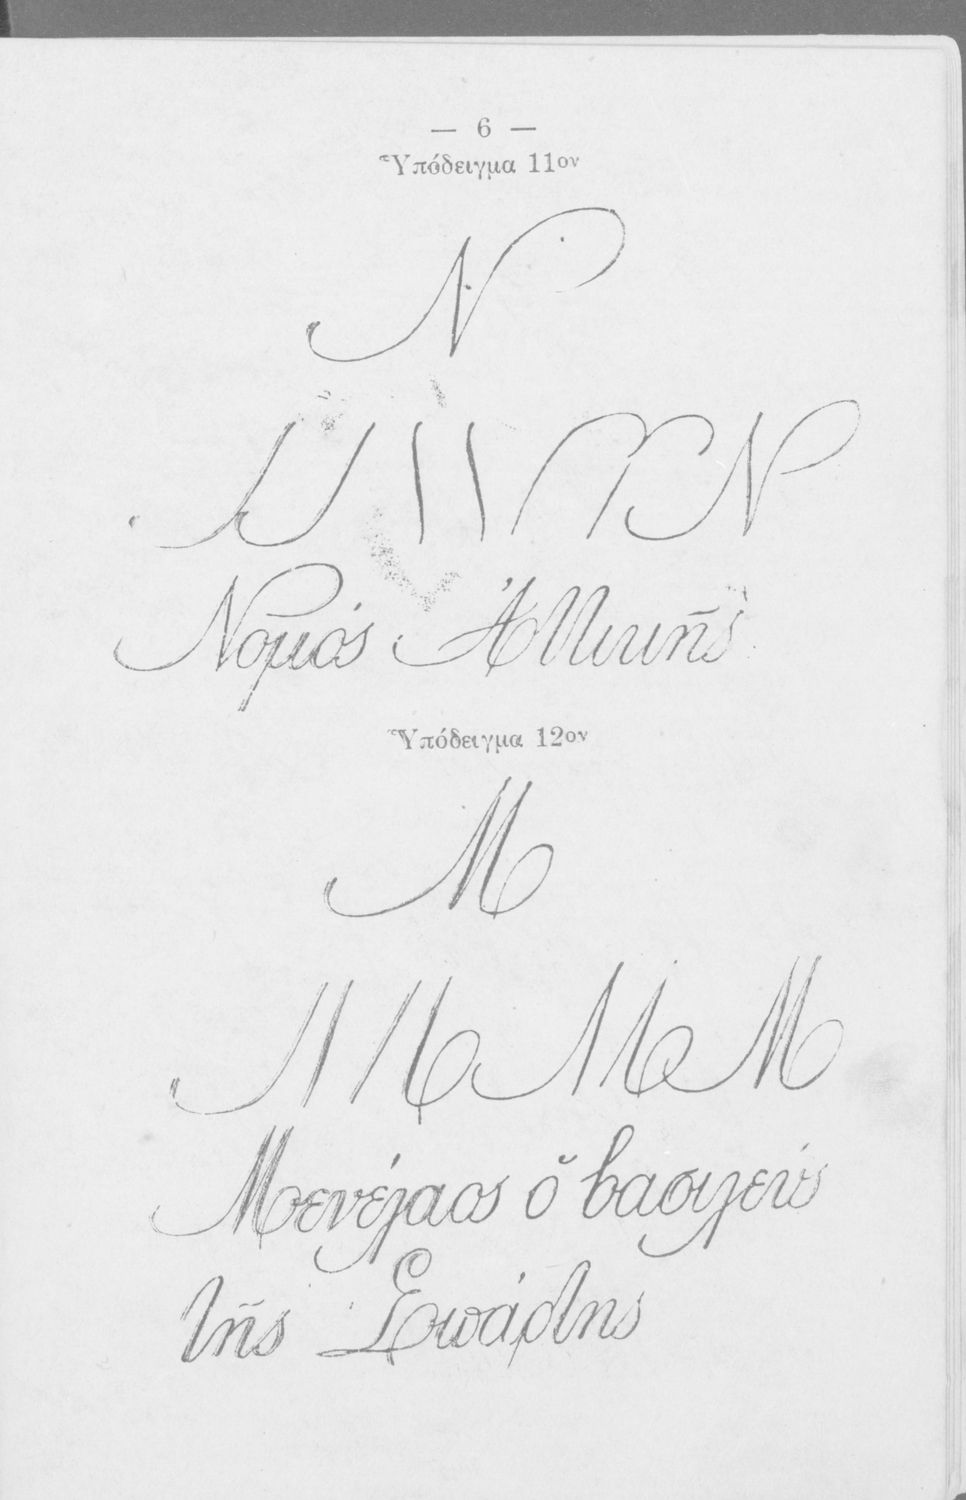 — 6 —
Ὑπόδειγμα 11ον
Ν
Ν
Νομός Ἀττικῆς
Ὑπόδειγμα 12ον
Μ
Μ Μ
Μενέλαος ὁ βασιλεύς
τῆς Σπάρτης